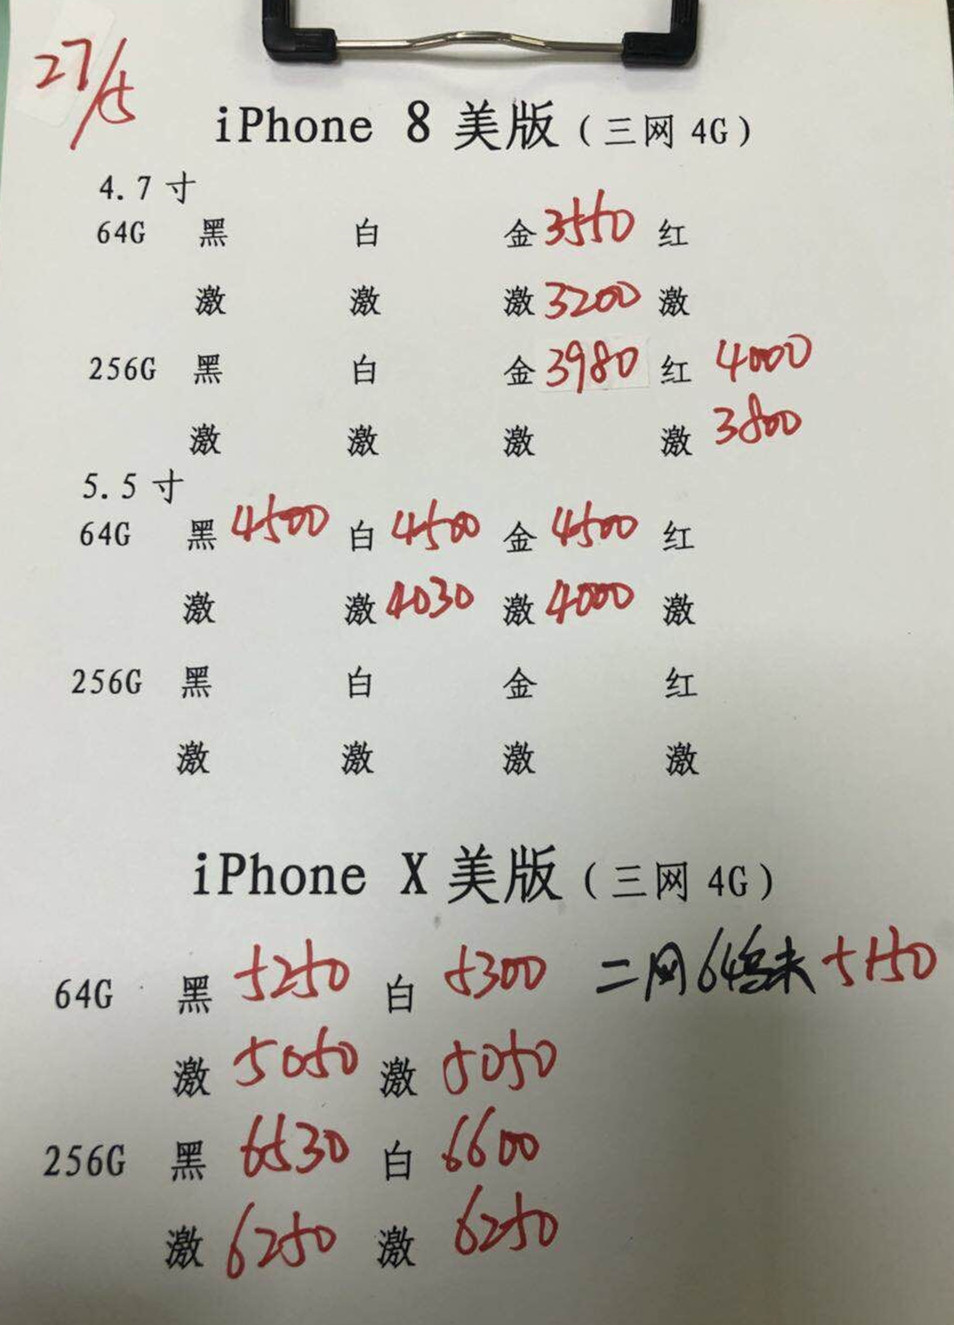 27/5
iPhone 8 美版（三网 4G）
4.7 寸
64G 黑 白 金 3550 红
激 激 激 3200 激
256G 黑 白 金 3980 红 4000
激 激 激 激 3800
5.5 寸
64G 黑 4500 白 4500 金 4500 红
激 激 4030 激 4000 激
256G 黑 白 金 红
激 激 激 激
iPhone X 美版（三网 4G）
64G 黑 5250 白 5300 二网 64 未 5150
激 5050 激 5050
256G 黑 6530 白 6600
激 6250 激 6250